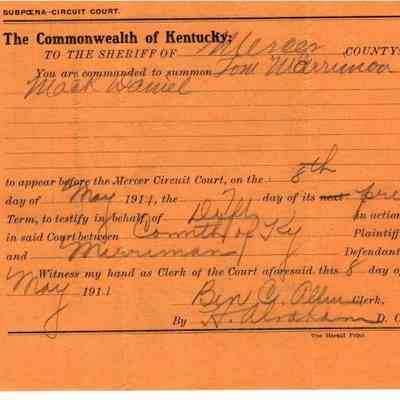 SUBPŒNA-CIRCUIT COURT.
The Commonwealth of Kentucky:
TO THE SHERIFF OF Mercer COUNTY:
You are commanded to summon Tom Merrimon
Mack Daniel
8th
to appear before the Mercer Circuit Court, on the
day of May 1911, the day of its next pre
Term, to testify in behalf of Deft an action
in said Court between Comth of Ky Plaintiff
and Merriman Defendant
Witness my hand as Clerk of the Court aforesaid, this 8 day of
May 1911 Ben C. Allin Clerk,
By H. Abraham D. C
The Herald Print.